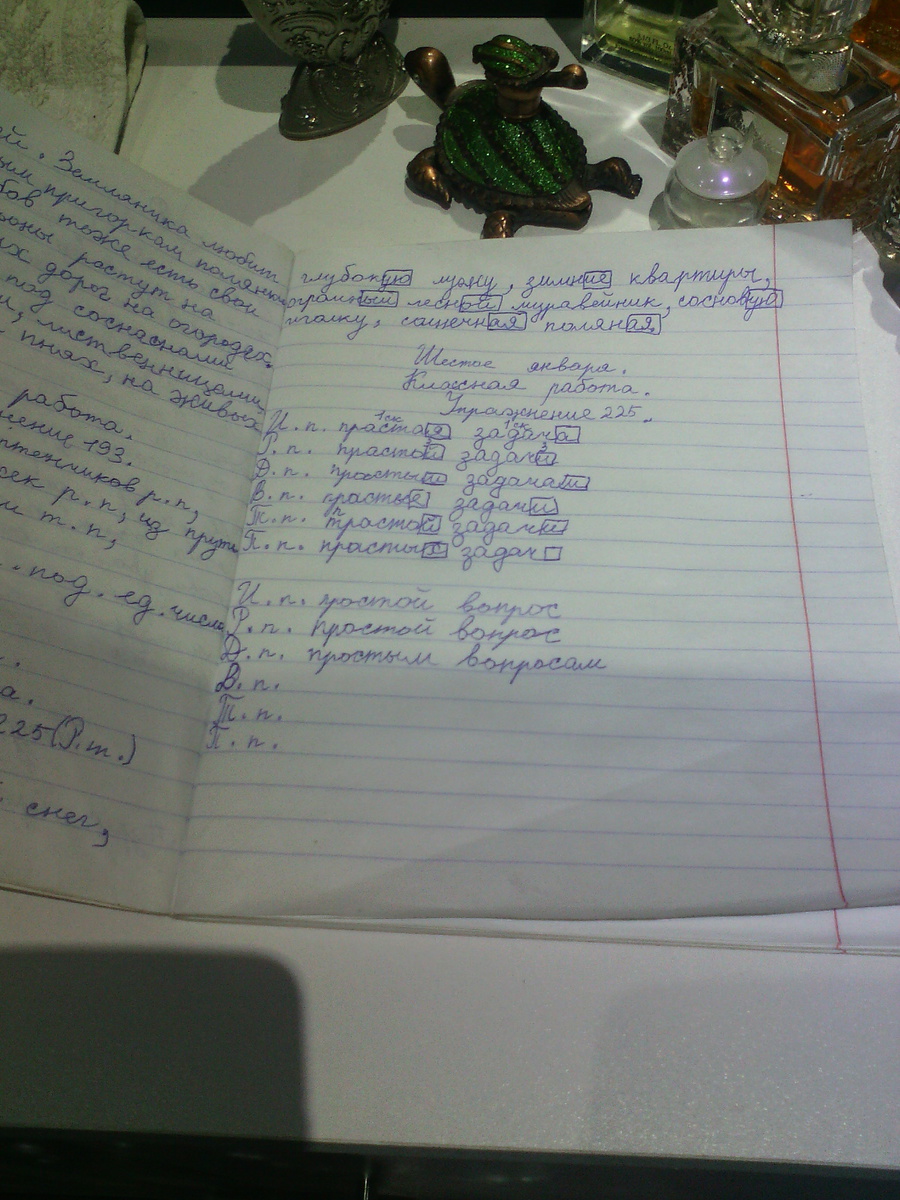 ей. Земляника любит
ым пригоркам, полянки
бов тоже есть свои
оны растут на
их дорог на огородах.
под сосна
и, лиственницами,
пнях, на живых
работа.
нение 193.
птенчиков р.п,
сек р.п, из прути
т.п,
под. ед. числа
а.
225(Р.т.)
снег,
глубокую щожу, зимние квартиры,
огромный лесной муравейник, сосновую
иголку, солнечная поляная,
Шестое января.
Классная работа.
Упражнение 225.
1ск 1ск
И. п. прастая задача
Р. п. простой задачи
Д. п. простым задачам
В. п. прастые задачи
Т. п. прастой задачи
П. п. простых задач
И. п. простой вопрос
Р. п. простой вопрос
Д. п. простым вопросам
В. п.
Т. п.
П. п.